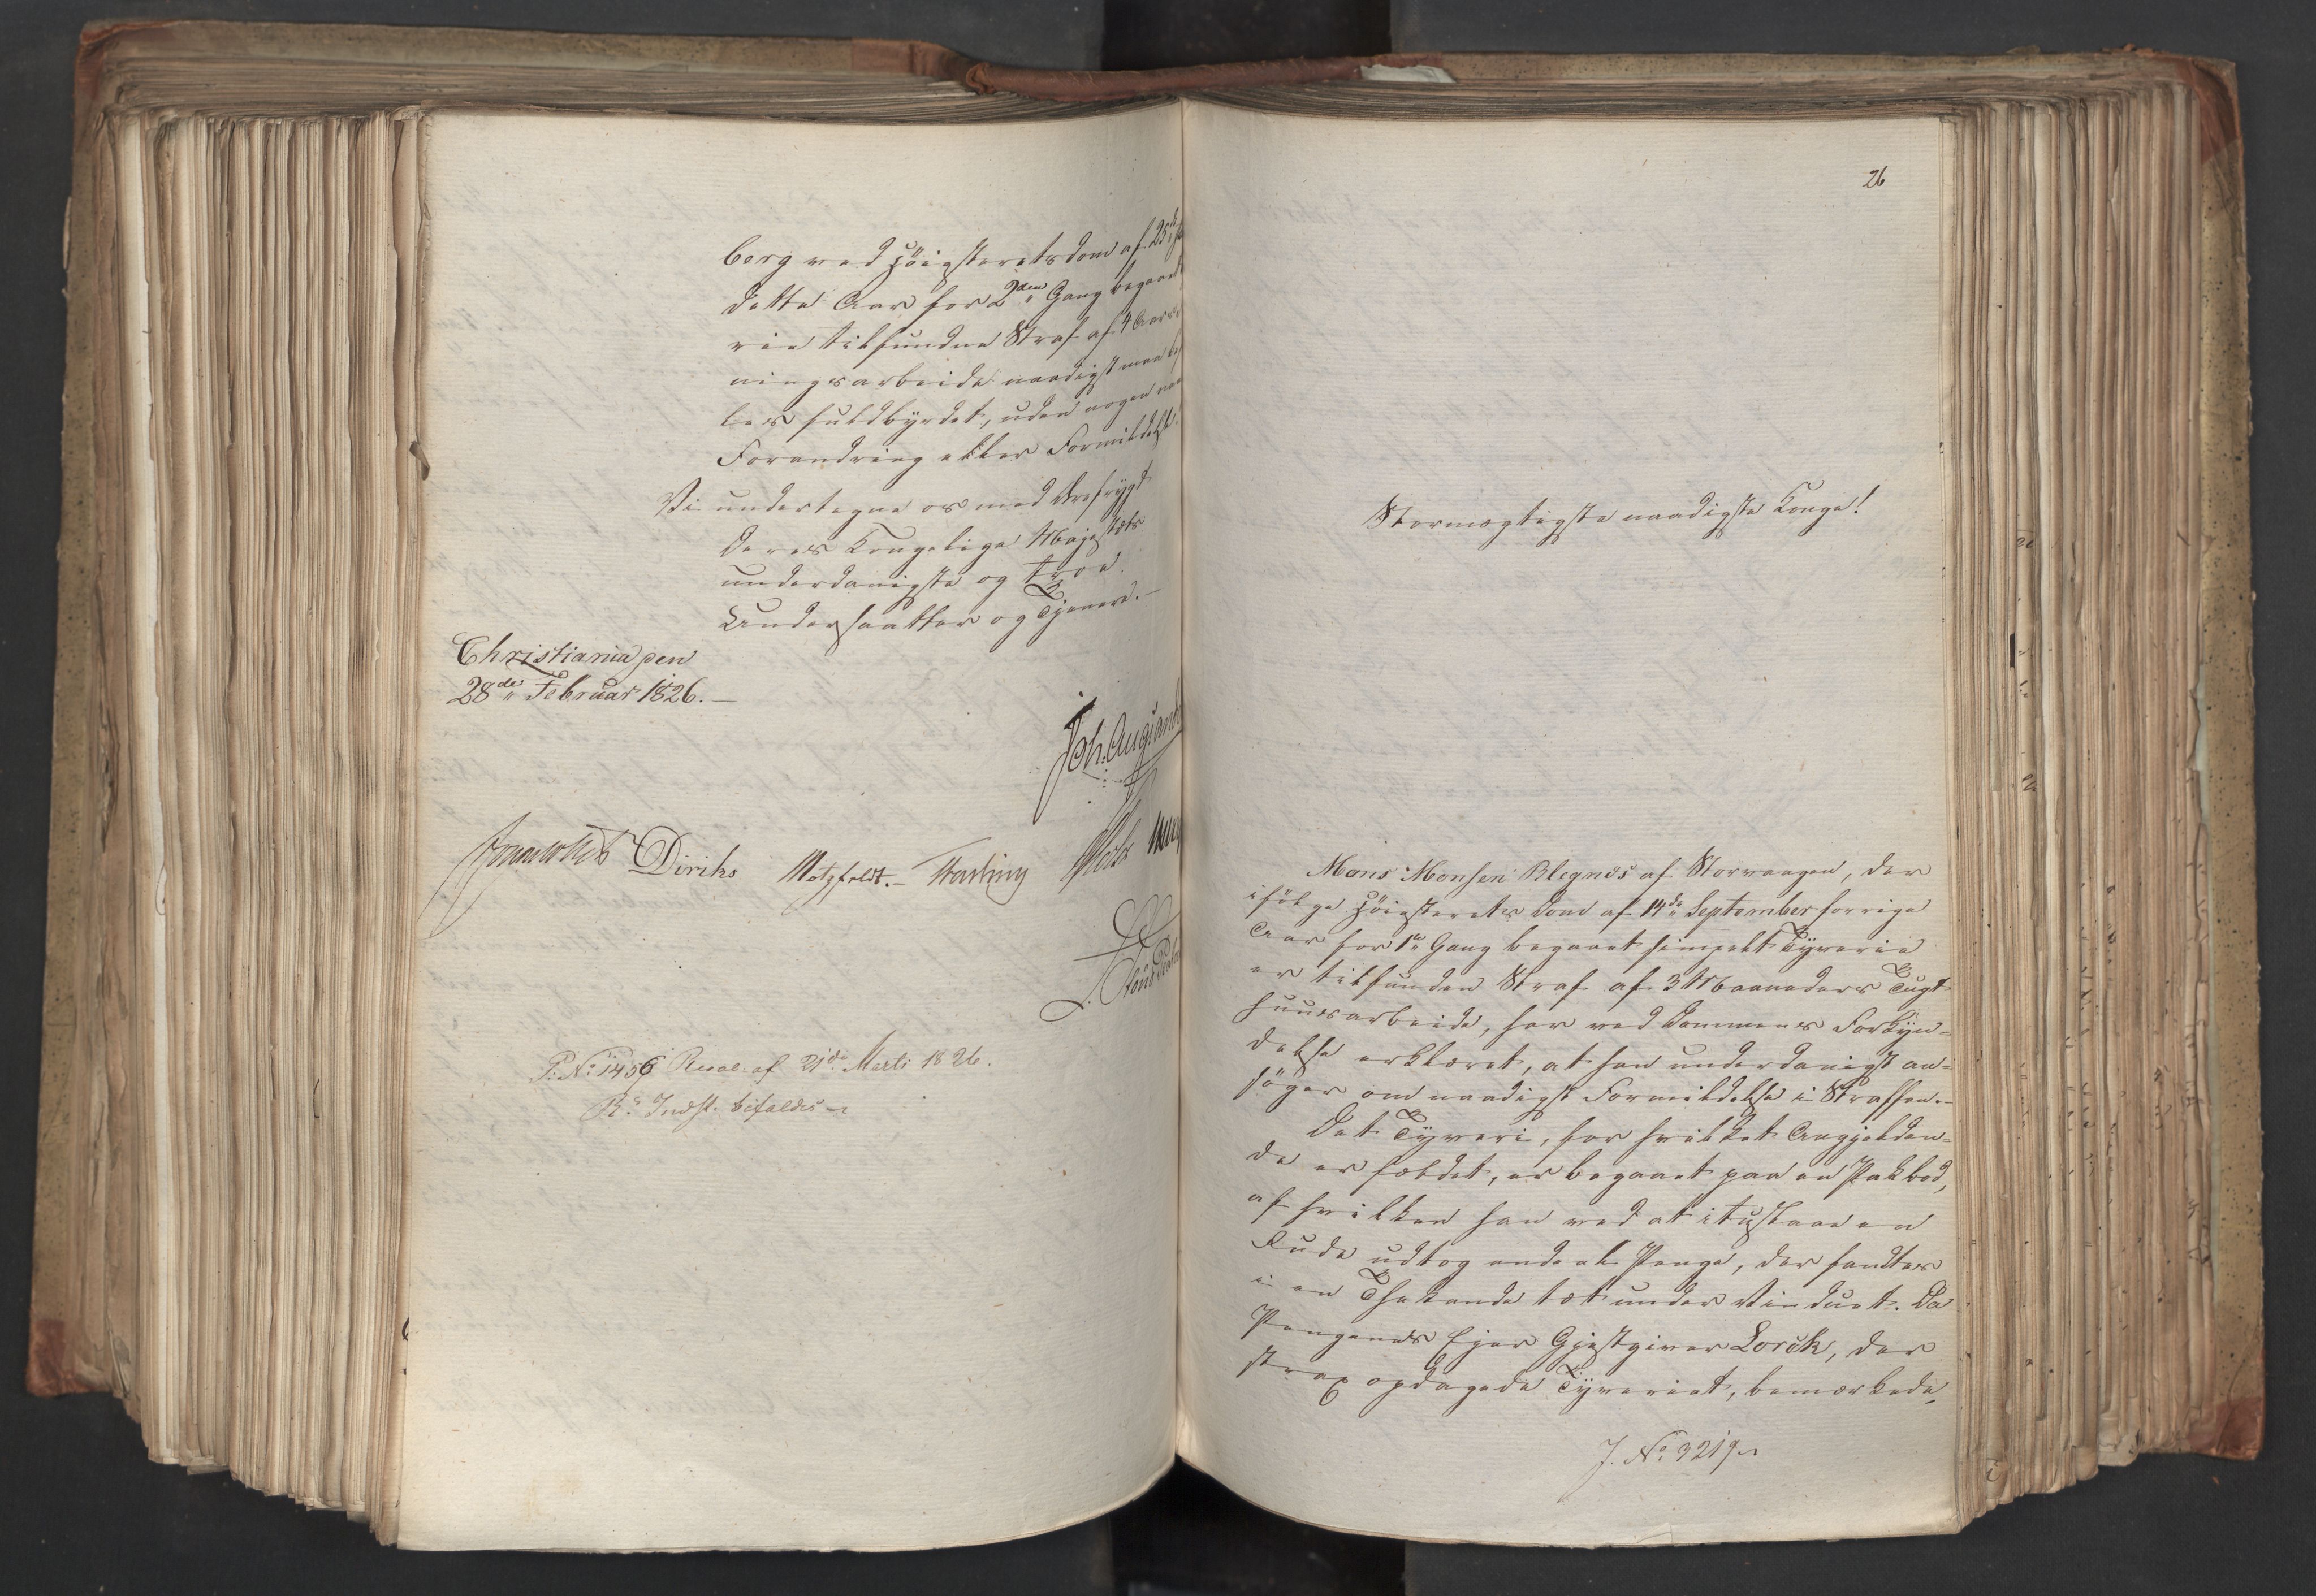 berg ved Höiesteretsdom af 25de
dette Aar for 2den Gang begaaet
rie tilfundne Straf af 4 Aars
ningsarbeide naadigst maa be
les fuldbyrdet, uden nogen
Forandring eller Formildelse.
Vi undertegne os med Ærefrygt
Deres Kongelige Majestæts
underdanigste og troe
Undersaatter og Tjenere.
Christiania den
28de Februar 1826.
Diriks Motzfeldt.
P: No 1456 Resol. af 21de Marti 1826.
Rs Indst. bifaldes
26
Stormægtigste naadigste Konge!
Mons Monsen Blegnös af Storvaagen, der
ifölge Höiesterets Dom af 14de September forrige
Aar for 1ste Gang begaaet simpelt Tyverie
er tilfunden Straf af 3 Maaneders Tugt-
huusarbeide, har ved Dommens Forkyn-
delse erklæret, at han underdanigst an-
söger om naadigst Formildelse i Straffen.
Det Tyveri, for hvilket Angjelden-
de er fældet, er begaaet paa en Pakbod,
af hvilken han ved at ituslaae en
Rude udtog endeel Penge, der fandtes
i en Theekande tæt under Vinduet. Da
Pengenes Ejer Gjestgiver Lorck, der
strax opdagede Tyveriet, bemærkede,
J. No 3219